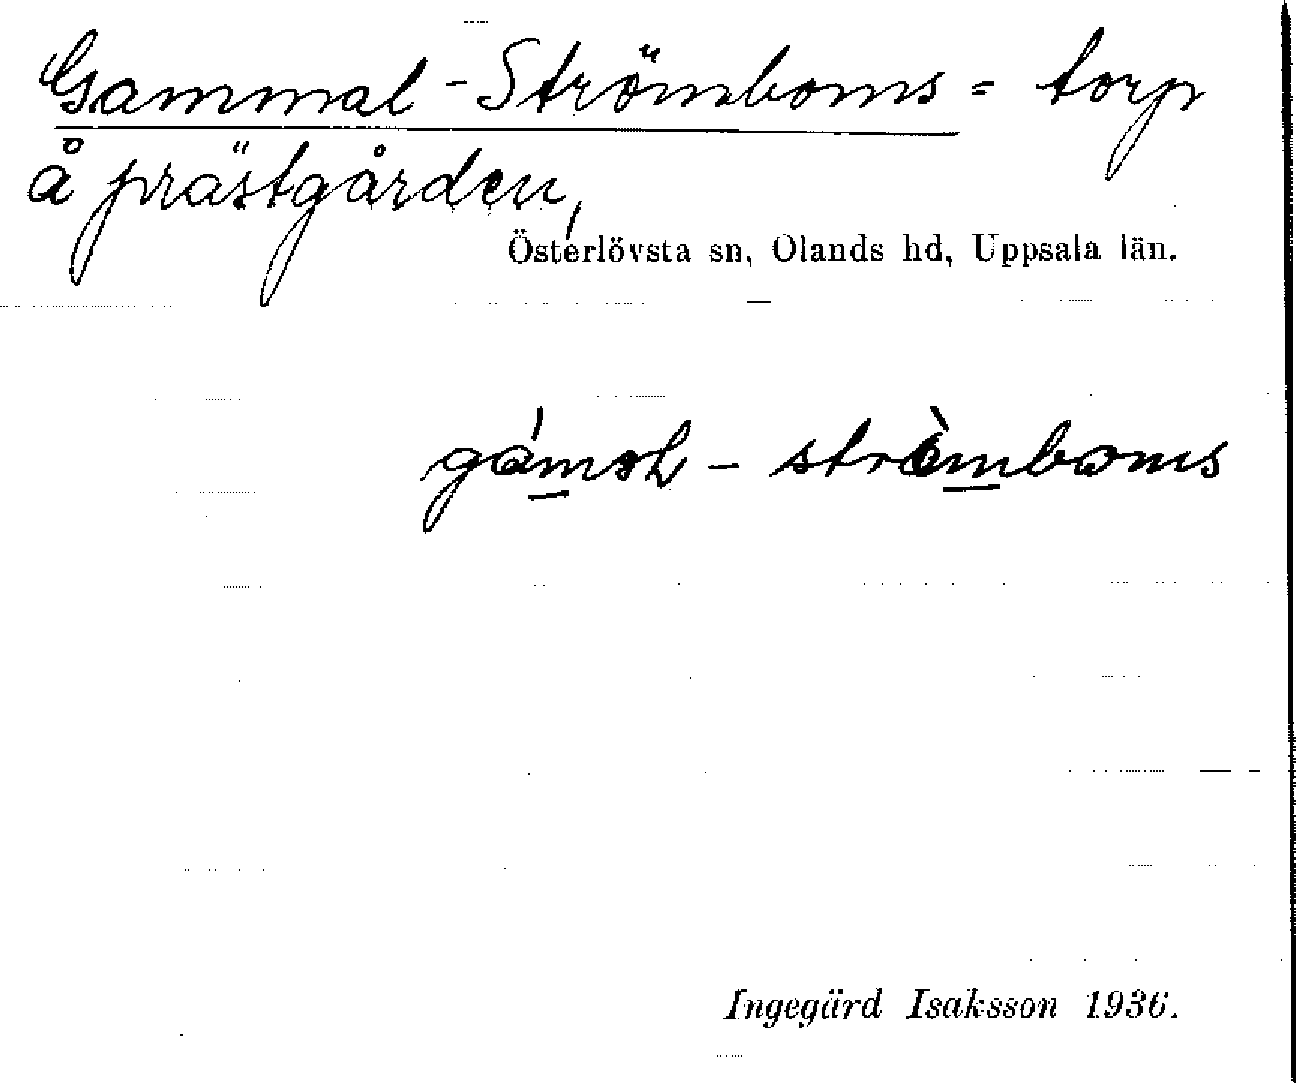 Gammal-Strömboms = torp
å prästgården,
Österlövsta sn, Olands hd, Uppsala län.
gáməl - strömboms
Ingegärd Isaksson 1936.